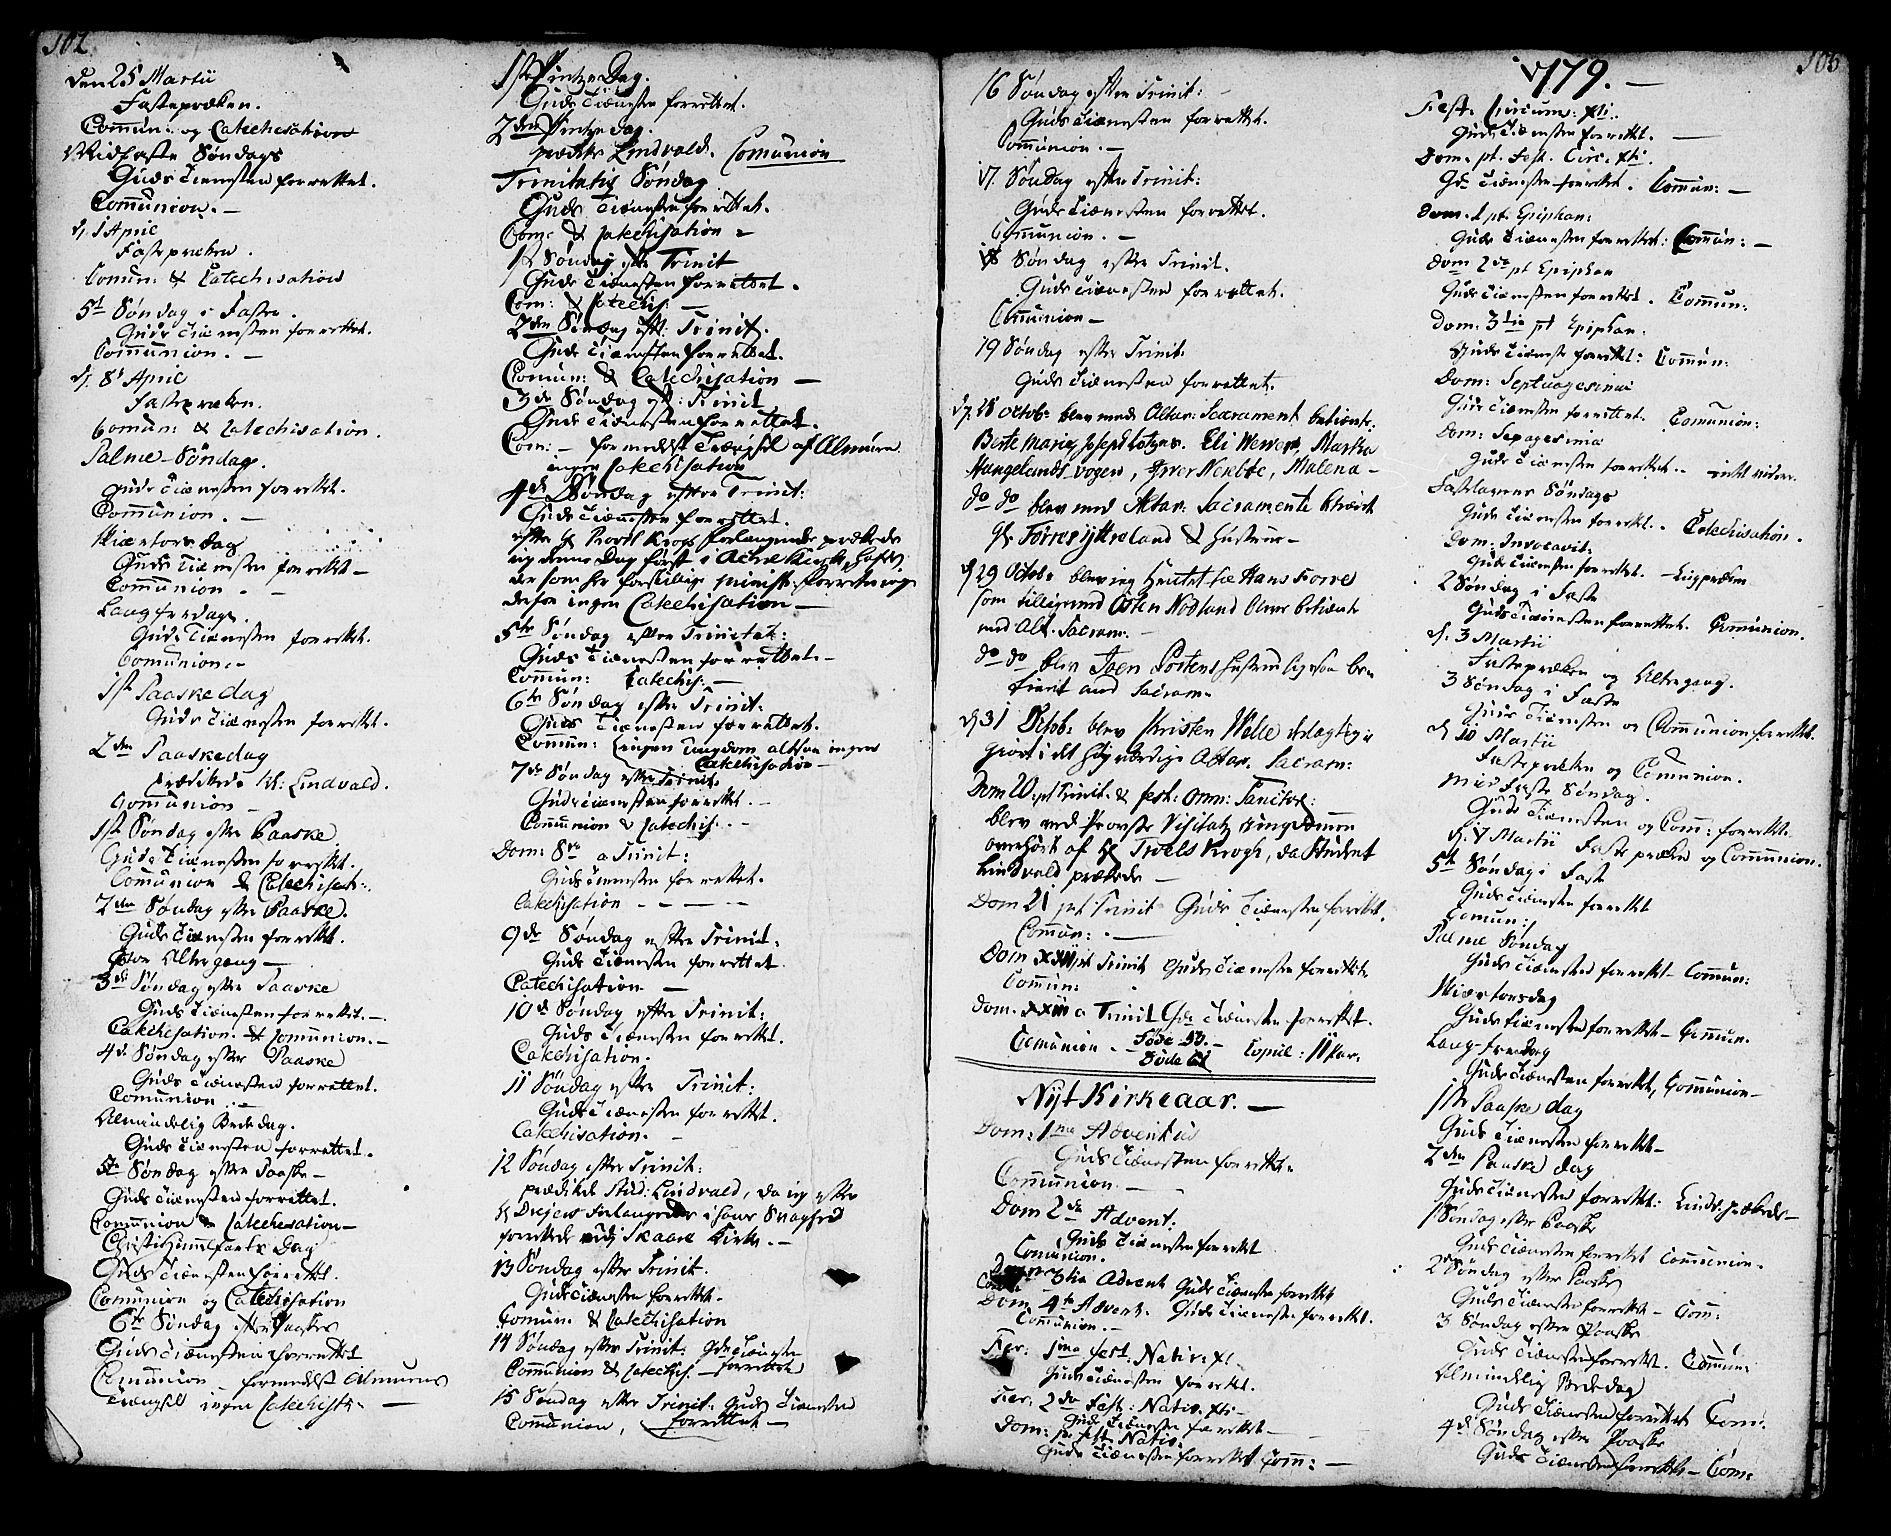 102
den 25 Martii
Fastepræken.
Commun: og Catechisation
Midfaste Søndags
Guds Tiænesten forrettet.
Communion. —
d. 1 April
Fasteprækene.
Comun: & Catechisation
5t Søndag i Faste.
Guds Tiænesten forrettet.
Communion. —
d. 8' April
Fasteprækene.
Comun: & Catechisation.
Palme-Søndag.
Guds Tiænesten forrettet.
Communion. —
Skiærtorsdag
Guds Tiænesten forrettet —
Communion. —
Langfredag.
Guds Tiænesten forrettet.
Comunion. —
1ste Paaskedag
Guds Tiænesten forrettet.
2den Paaskedag
prædikede Hr: Lindvald.
Comunion —
1ste Søndag efter Paaske
Guds Tiænesten forrettet.
Communion & Catechisat:
2den Søndag efter Paaske.
Guds Tiænesten forrettet.
Altergang —
3de Søndag efter Paaske
Guds Tiænesten forrettet. —
Catechisation. & Comunion. —
4de Søndag efter Paaske
Guds Tiænesten forrettet.
Communion. —
Almindelig Bededag.
Guds Tiænesten forrettet.
5te Søndag efter Paaske —
Guds Tiænesten forrettet.
Communion & Catechisation —
Christi Himmelfarts Dag
Guds Tiænesten forrettet.
Comunion og Catechisation
6te Søndag efter Paaske
Guds Tiænesten forrettet
Comunion formedelst Almuens
Trængsel ingen Catechisat: —
1ste Pintze Dag.
Guds Tiænesten forrettet.
2den Pintzedag.
prædikede Lindvald. Comunion
Trinitatis Søndag
Guds Tiænesten forrettet.
Com: & Catechisation —
1ste Søndag efter Trinit
Guds Tiænesten forrettet.
Com: & Catechis: —
2den Søndag eft: Trinit.
Guds Tiænesten forrettet.
Comun: & Catechisation —
3de Søndag eft: Trinit
Guds Tiænesten forrettet.
Com: — formedelst Trængsel af Almuen
ingen Catechisation
4de Søndag efter Trinit:
Guds Tiænesten forrettet.
efter Hr Provst Krogs forlangende prækede
jeg denne Dag først i
derfor ingen Catechisation —
5te Søndag efter Trinitat:
Guds Tiænesten forrettet —
Commun: Catechis: —
6te Søndag efter Trinit:
Guds Tiænesten forrettet.
Commun: ingen Ungdom altsaa ingen
Catechisation —
7de Søndag efter Trinit.
Guds Tiænesten forrettet. —
Communion & Catechis: —
Dom: 8va a Trinit:
Guds Tiænesten forrettet.
Catechisation — — —
9de Søndag efter Trinit:
Guds Tiænesten forrettet
Catechisation —
10de Søndag efter Trinit:
Guds Tiænesten forrettet.
Catechisation.
11 Søndag efter Trinit:
Guds Tiænesten forrettet.
Catechisation. —
12 Søndag efter Trinit:
prædikede Stud: Lindvald, da jeg efter
Hr Forlangende i hans Svaghed
forrettede ved Skaare Kirke. —
13 Søndag efter Trinit:
Guds Tiænesten forrettet.
Comun: & Catechisation
14 Søndag efter Trinit: Guds Tiæneste
Communion & Catechis. — forrettet
15 Søndag efter Trinit: Guds Tiænesten
Communion, forrettet —
16 Søndag efter Trinit: —
Guds Tiænesten forrettet.
Communion. —
17. Søndag efter Trinit:
Guds Tiænesten forrettet.
Communion. —
18 Søndag efter Trinit.
Guds Tiænesten forrettet.
Communion —
19 Søndag efter Trinit:
Guds Tiænesten forrettet.
d. 28 Octob: blev med Altar: Sacrament betient
Berte Marie, Eli Martha
Malena —
do do blev med Altar: Sacramente betient
Hr land & Hustrue —
d 29 Octob: blev jeg hentet til Hans
som tilligemed Østen Nodland blev betient
med Alt. Sacram: —
do do blev Hustrue ligesaa be
tient med Sacram.
d 31 Octob: blev Christen Welle
giort i det høyværdige Altar. Sacram:
Dom 20. pt Trinit. & fest: omn: Sanctor:
blev ved Provste Visitatz Ungdomen
overhørt af Hr Troels Krogh, da Student
Lindvald prækede —
Dom 21 pt Trinit Guds Tiænesten forrettet.
Comun: —
Dom XXII pt Trinit Guds Tiænesten forrettet
Comun:
Dom. XXIII a Trinit Gds Tiænesten forrettet.
Comunion — Føde 50. — Copul: 11 Par.
Døde 61
Nyt Kirkeaar. —
Dom: 1ma Adventus
Guds Tiænesten forrettet.
Communion —
Dom 2da Advent:
Guds Tiænesten forrettet
Comunion.
3tia Advent Guds Tiæneste forrettet
Dom 4ta Advent. Guds Tiænesten forrettet.
Comunion. —
Fer: 1ma fest: Nativ: Xti
Guds Tiænesten forrettet.
Fer: 2da Fest: Nativ. Xti —
Guds Tiænesten forrettet —
Dom: p. fest. Nativ:
Guds Tiænesten forrettet Com: —
1779. —
103
Fest. Circum: Xti.
Guds Tiænesten forrettet. —
Dom. pt. Fest. Circ. Xti.
Gds Tiænesten forrettet. Commun: —
Dom. 1 pt. Epiphan:
Guds Tiænesten forrettet: Commun: —
Dom 2da pt Epiphan
Guds Tiænesten forrettet. Commun:
Dom: 3tia pt Epiphan.
Guds Tiæneste forrettet: Commun:
Dom: Septuagesima
Guds Tiænesten forrettet. Comunion:
Dom: Sexagesima
Guds Tiænesten forrettet. — intet videre.
Fastelavens Søndags
Guds Tiænesten forrettet. Catechisation.
Dom: Invocavit:
Guds Tiænesten forrettet. —
2 Søndag i Faste
Guds Tiænesten forrettet. Communion.
d. 3 Martii
Fasteprækene og Altergang.
3 Søndag i Faste
Guds Tiænesten og Communion forrettet.
d 10 Martii
Fasteprækene og Comunion.
Midfaste Søndag.
Guds Tiænesten og Comm: forrettet.
d. 17 Martii Faste prækene og Communion.
5te Søndag i Faste
Guds Tiænesten forrettet
Comun:
Palme Søndag
Guds Tiænesten forrettet — Commun:
Skiærtorsdag
Guds tiænesten forrettet — Commun.
Lang-fredag
Guds Tiænesten forrettet, Communion —
1ste Paaske dag
Guds Tiænesten forrettet —
2den Paaske dag
Guds Tiænesten forrettet: Lindv. prækede —
1 Søndag efter Paaske
Guds Tiænesten forrettet Communion.
2 Søndag efter Paaske
Guds Tiænesten forrettet — Com:
3 Søndag efter Paaske
Guds Tiænesten forrettet. Commun:
Almindelig Bededag
Guds Tiænesten forrettet Com:
4de Søndag efter Paaske
Guds Tiænesten forrettet — Com: